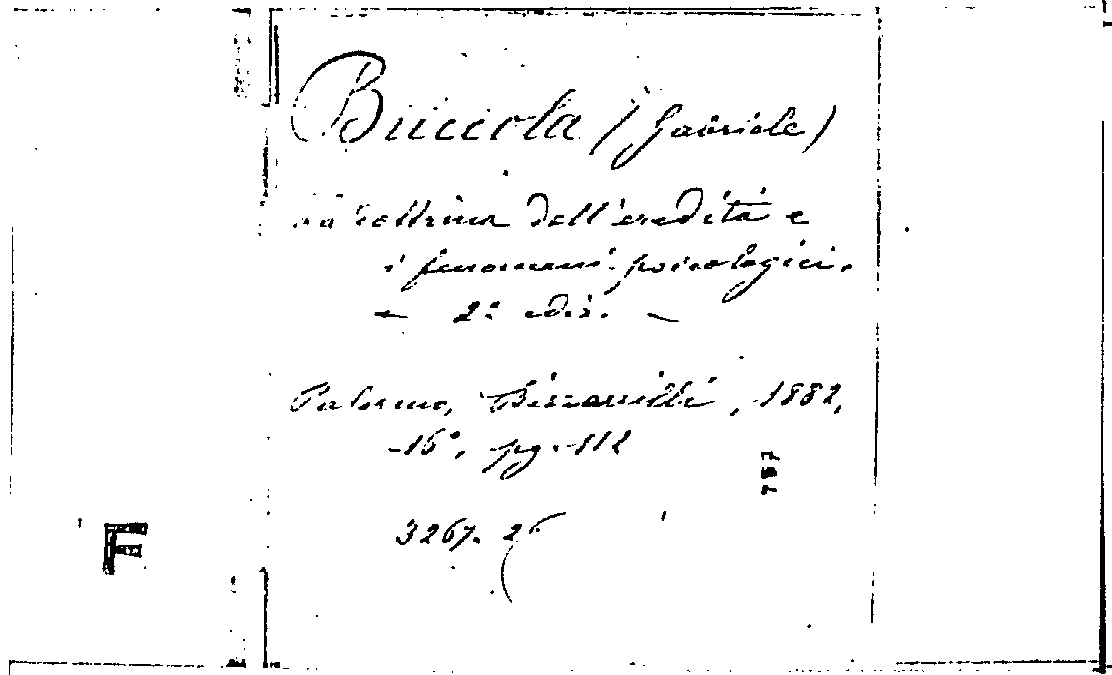 Buccola (Gabriele)
La dottrina dell'eredità e
i fenomeni psicologici.
— 2ª ediz. —
Palermo, 1882,
-16°, pg. 112
787
3267. 26
F